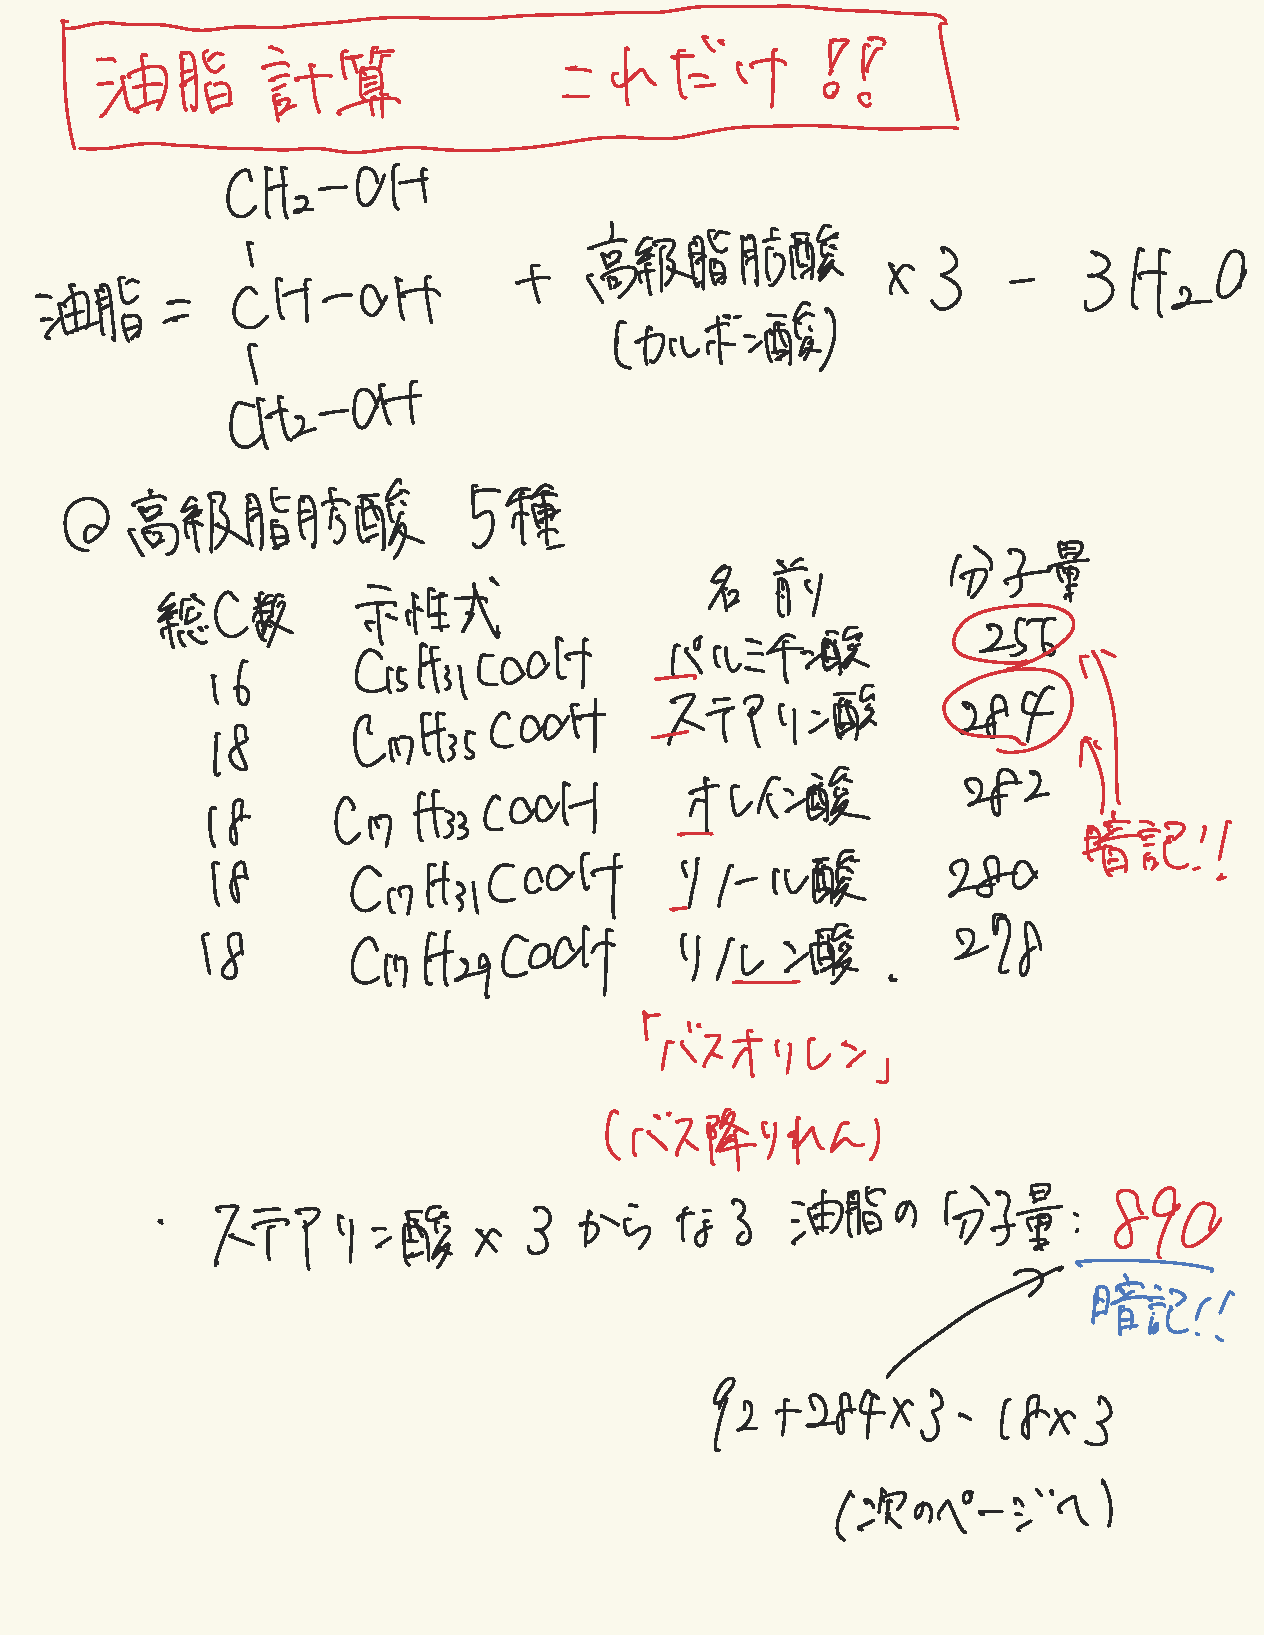 油脂計算 これだけ!!
CH₂-OH
油脂 = CH-OH + 高級脂肪酸 × 3 - 3H₂O
(カルボン酸)
CH₂-OH
◎高級脂肪酸 5種
総C数 示性式 名前 分子量
16 C₁₅H₃₁COOH パルミチン酸 256
18 C₁₇H₃₅COOH ステアリン酸 284
18 C₁₇H₃₃COOH オレイン酸 282
暗記!!
18 C₁₇H₃₁COOH リノール酸 280
18 C₁₇H₂₉COOH リノレン酸. 278
「バスオリレン」
(バス降りれん)
・ステアリン酸×3からなる油脂の分子量:890
暗記!!
92+284×3-18×3
(次のページへ)